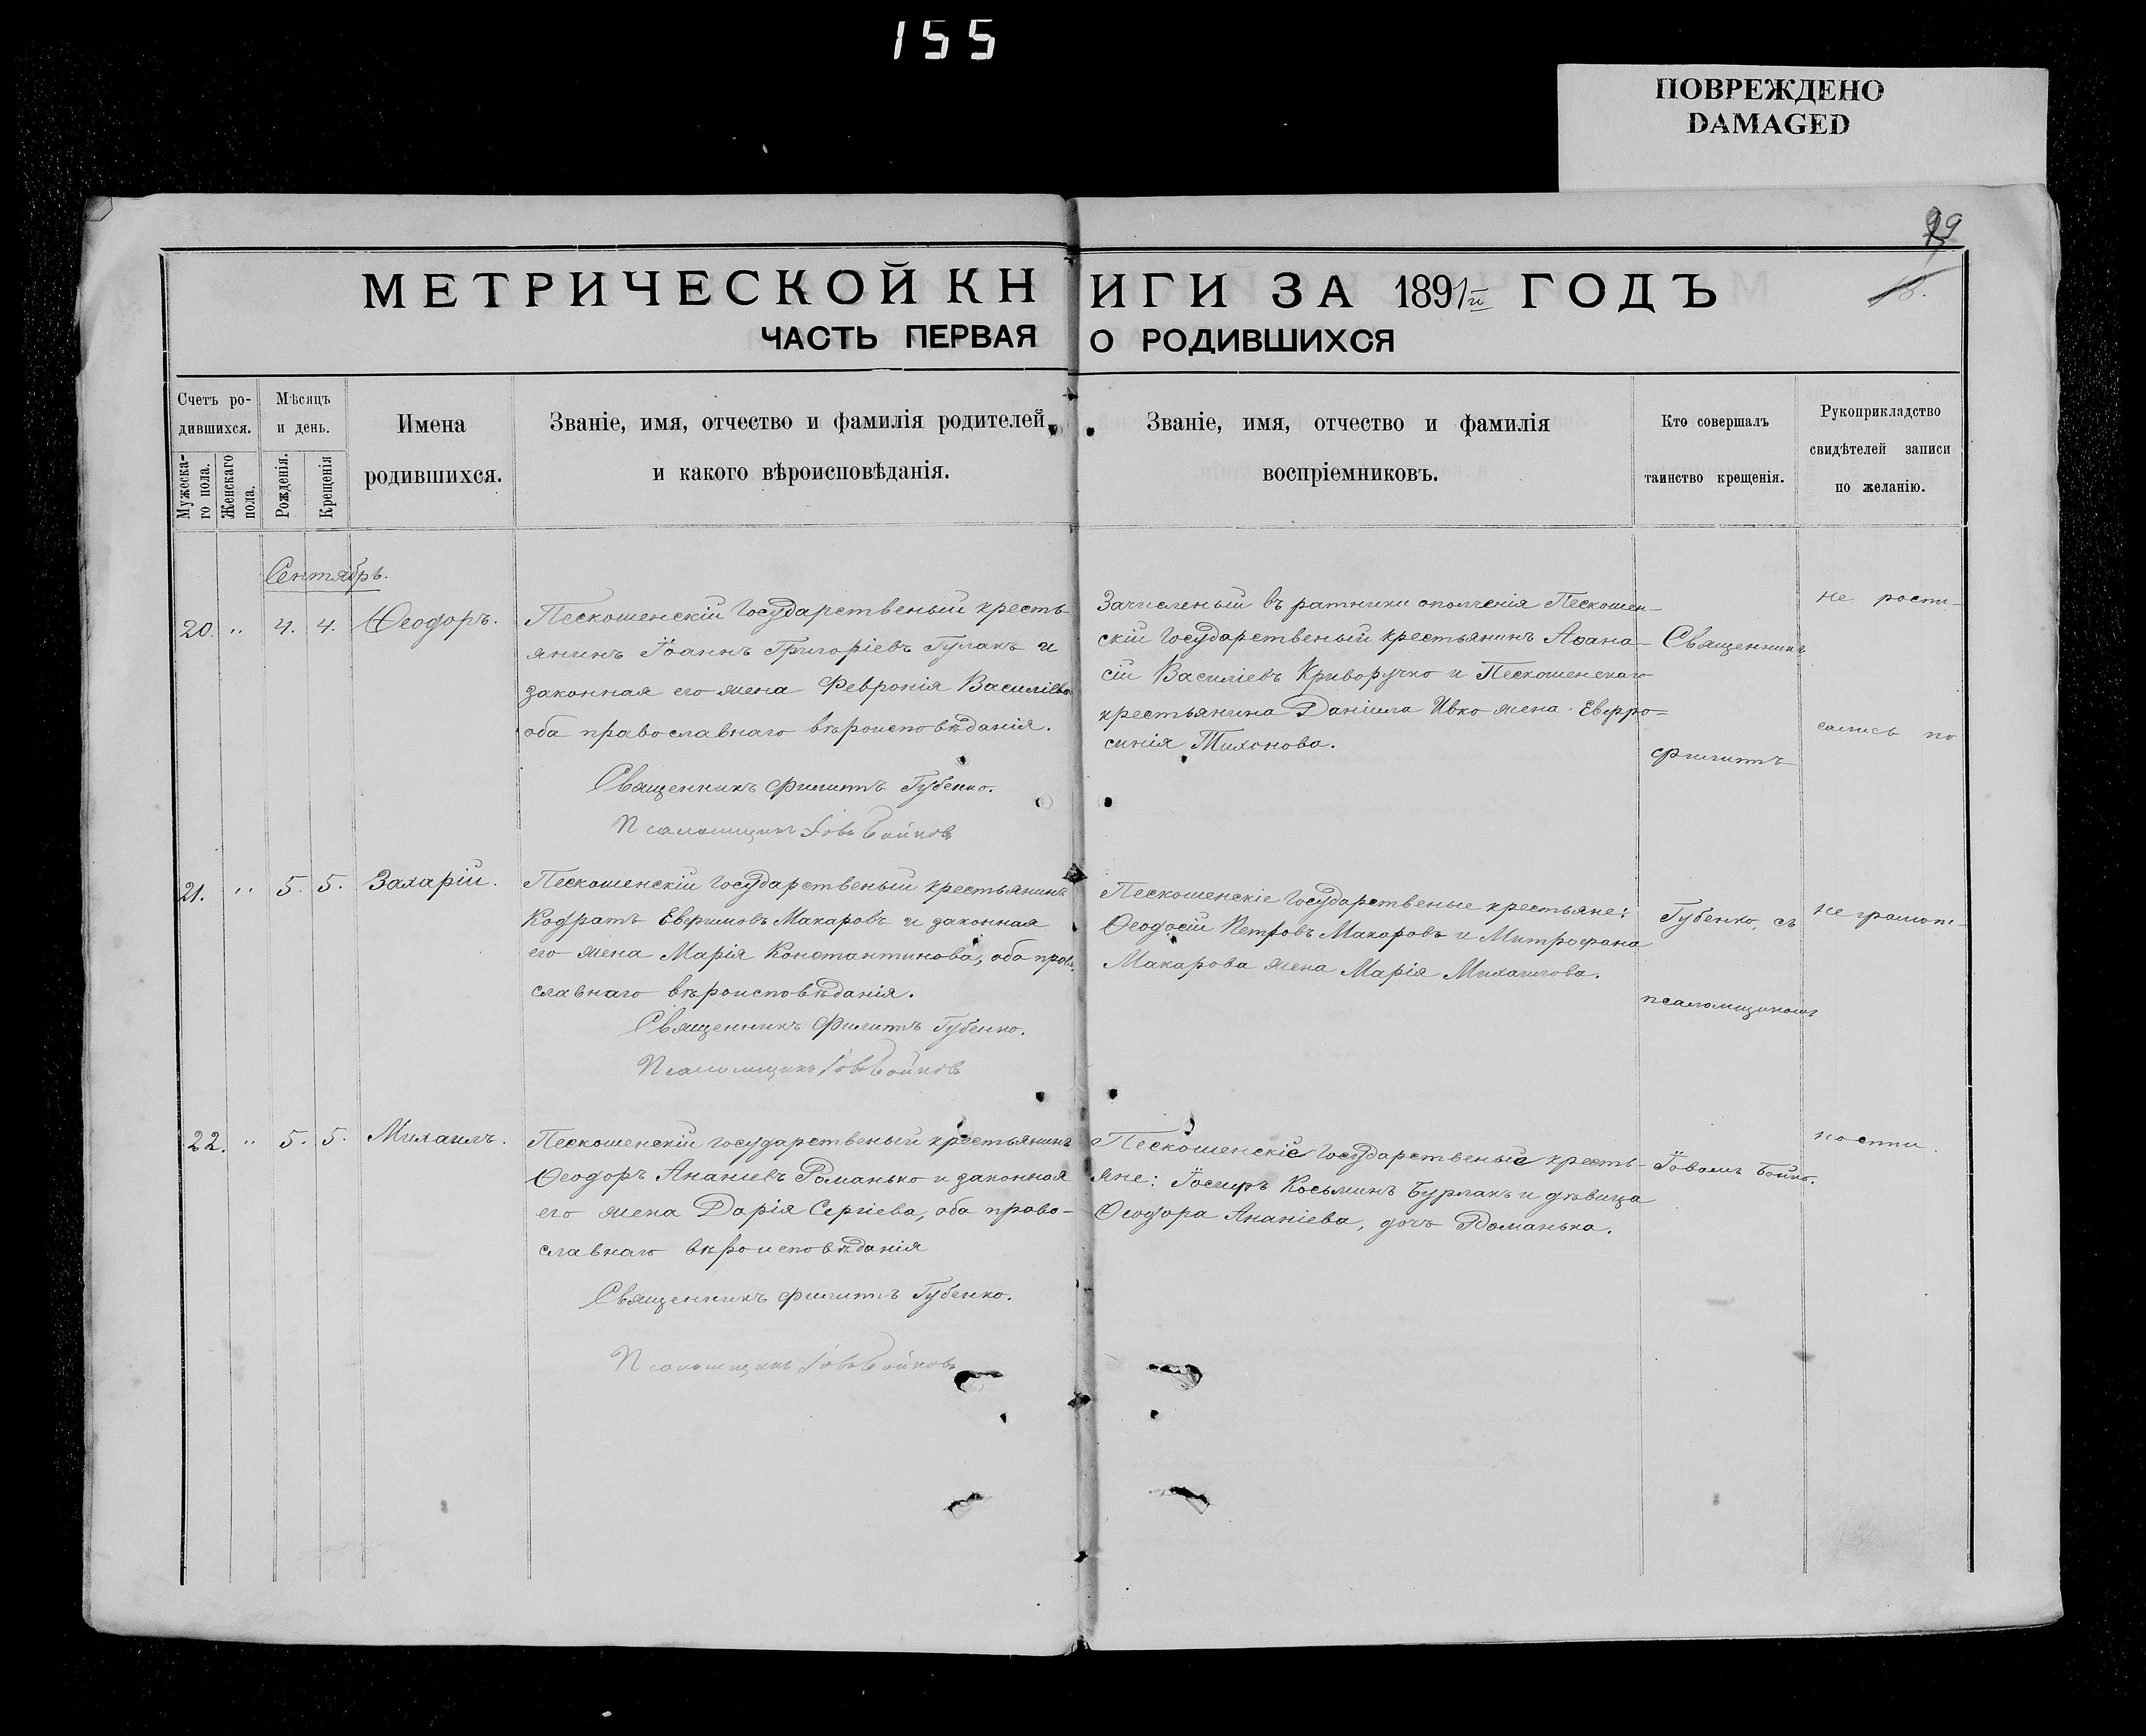 155
ПОВРЕЖДЕНО
DAMAGED
99
МЕТРИЧЕСКОЙ КНИГИ ЗА 1891й ГОДЪ
ЧАСТЬ ПЕРВАЯ О РОДИВШИХСЯ
Счетъ ро-
дившихся.
Мужеска-
го пола.
Женскаго
пола.
Мѣсяцъ
и день.
Рожденія.
Крещенія
Имена
родившихся.
Званіе, имя, отчество и фамилія родителей,
и какого вѣроисповѣданія.
Званіе, имя, отчество и фамилія
воспріемниковъ.
Кто совершалъ
таинство крещенія.
Рукоприкладство
свидѣтелей записи
по желанію.
Сентябрь.
20. " 4. 4. Ѳеодоръ.
Пескошенскій Государственый кресть-
янинъ Іоаннъ Григоріевъ Гулакъ и
законная его жена Февронія Василіева
оба православнаго вѣроисповѣданія.
Священникъ Филиппъ Губенко.
Псаломщикъ Іовъ Бойковъ
Зачисленый въ ратники ополченія Пескошен-
скій Государственый крестьянинъ Аѳана-
сій Василіевъ Криворучко и Пескошенскаго
крестьянина Даніила Ивко жена Евфро=
синія Тихонова.
Священникъ
Филиппъ
не роспи-
сались по
21. " 5. 5. Захарій.
Пескошенскій Государственый крестьянинъ
Кодратъ Евфимовъ Макаровъ и законная
его жена Марія Константинова, оба право
славнаго вѣроисповѣданія.
Священникъ Филиппъ Губенко.
Псаломщикъ Іовъ Бойковъ
Пескошенскіе Государственые крестьяне:
Ѳеодосій Петровъ Макаровъ и Митрофана
Макарова жена Марія Михаилова.
Губенко, съ
псаломщикомъ
не грамот-
22. " 5. 5. Михаилъ.
Пескошенскій государственый крестьянинъ
Ѳеодоръ Ананіевъ Романько и законная
его жена Дарія Сергіева, оба право-
славнаго вѣроисповѣданія
Священникъ Филиппъ Губенко.
Псаломщикъ Іовъ Бойковъ
Пескошенскіе Государственые кресть-
яне: Іосифъ Косьминъ Бурлакъ и дѣвица
Ѳеодора Ананіева, дочь Романька.
Іовомъ Бойко.
ности